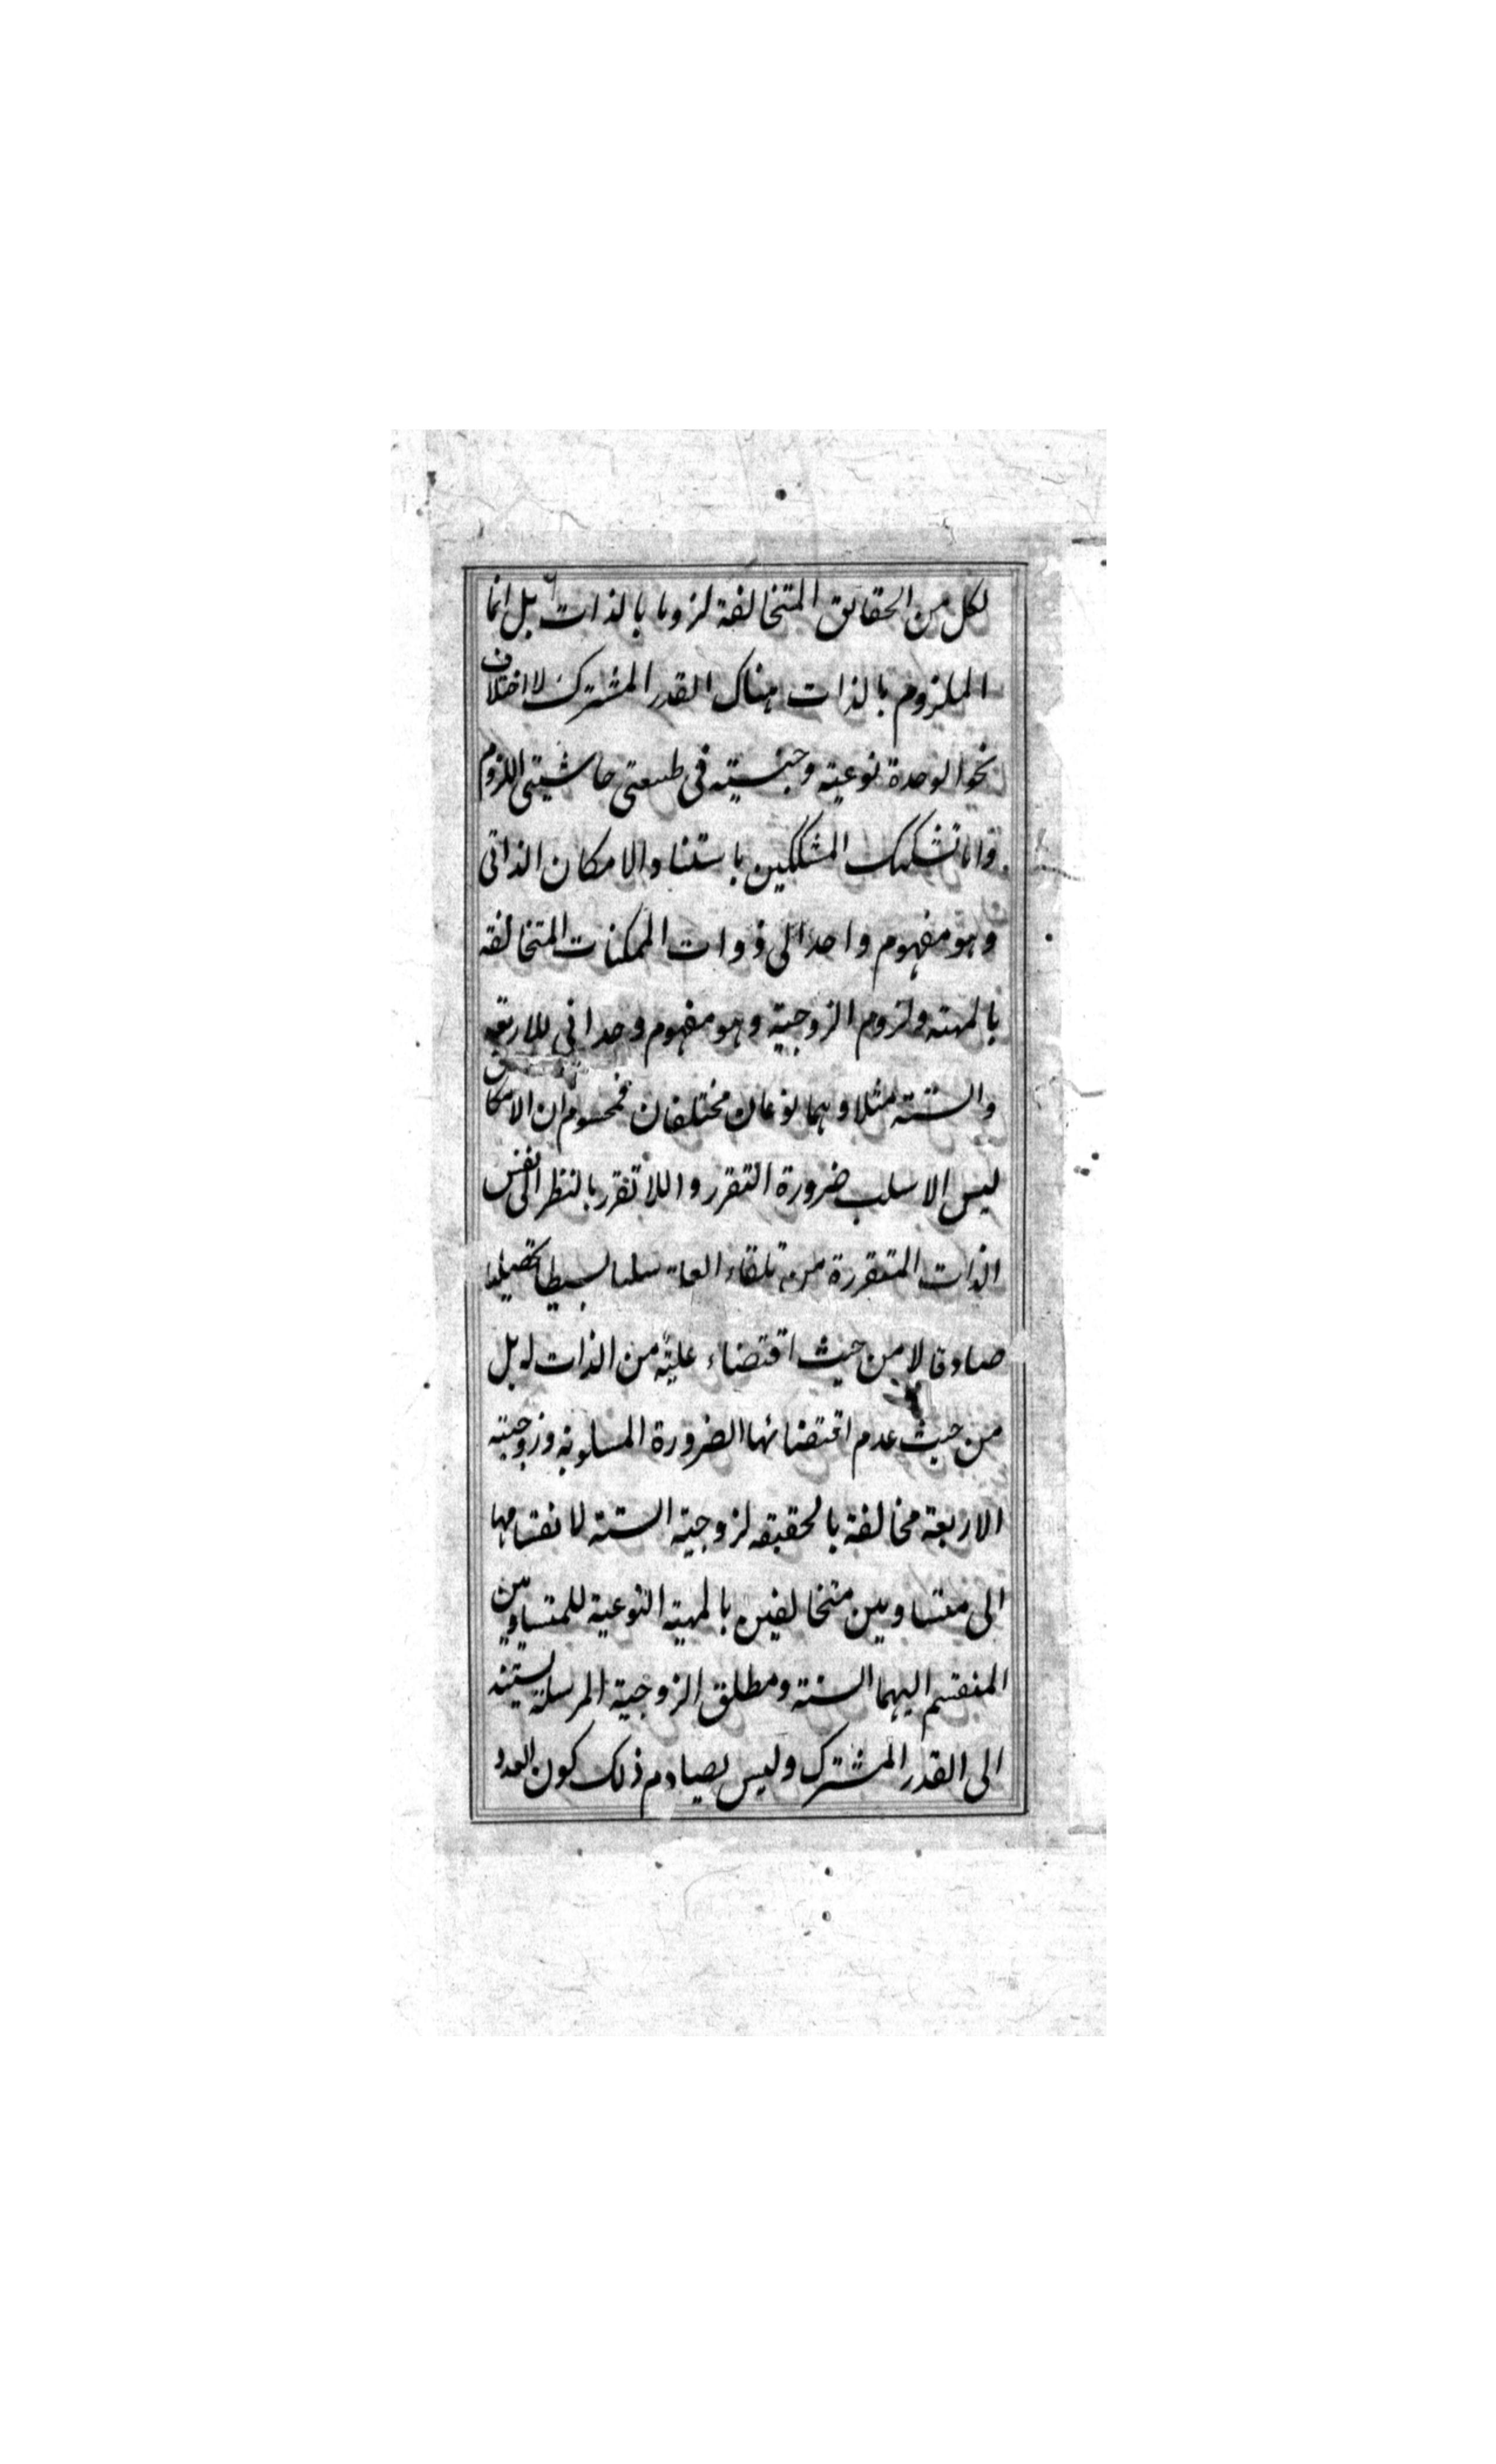 لكل من الحقائق المتخالفة لزوما بالذات بل انما
الملزوم بالذات هناك القدر المشترك لا اختلاف
نحو الوحدة نوعية وجنسية فى طبيعتى حاشيتى اللزوم
واما تشكيك المشككين باستناد الامكان الذاتى
وهو مفهوم واحد الى ذوات الممكنات المتخالفة
بالمهية ولزوم الزوجية وهو مفهوم وحدانى للاربعة
والستة مثلا وهما نوعان مختلفان فمحسوم ان الامكان
ليس الا سلب ضرورة التقرر واللاتقرر بالنظر الى نفس
الذات المتقررة من تلقاء العلة سلبا بسيطا تحصيليا
صادقا لا من حيث اقتضاء علية من الذات له بل
من حيث عدم اقتضائها الضرورة المسلوبة وزوجية
الاربعة مخالفة بالحقيقة لزوجية الستة لانقسامها
الى متساويين متخالفين بالمهية النوعية للمتساويين
المنقسم اليهما الستة ومطلق الزوجية المرسلة يستند
الى القدر المشترك وليس يصادم ذلك كون العدد